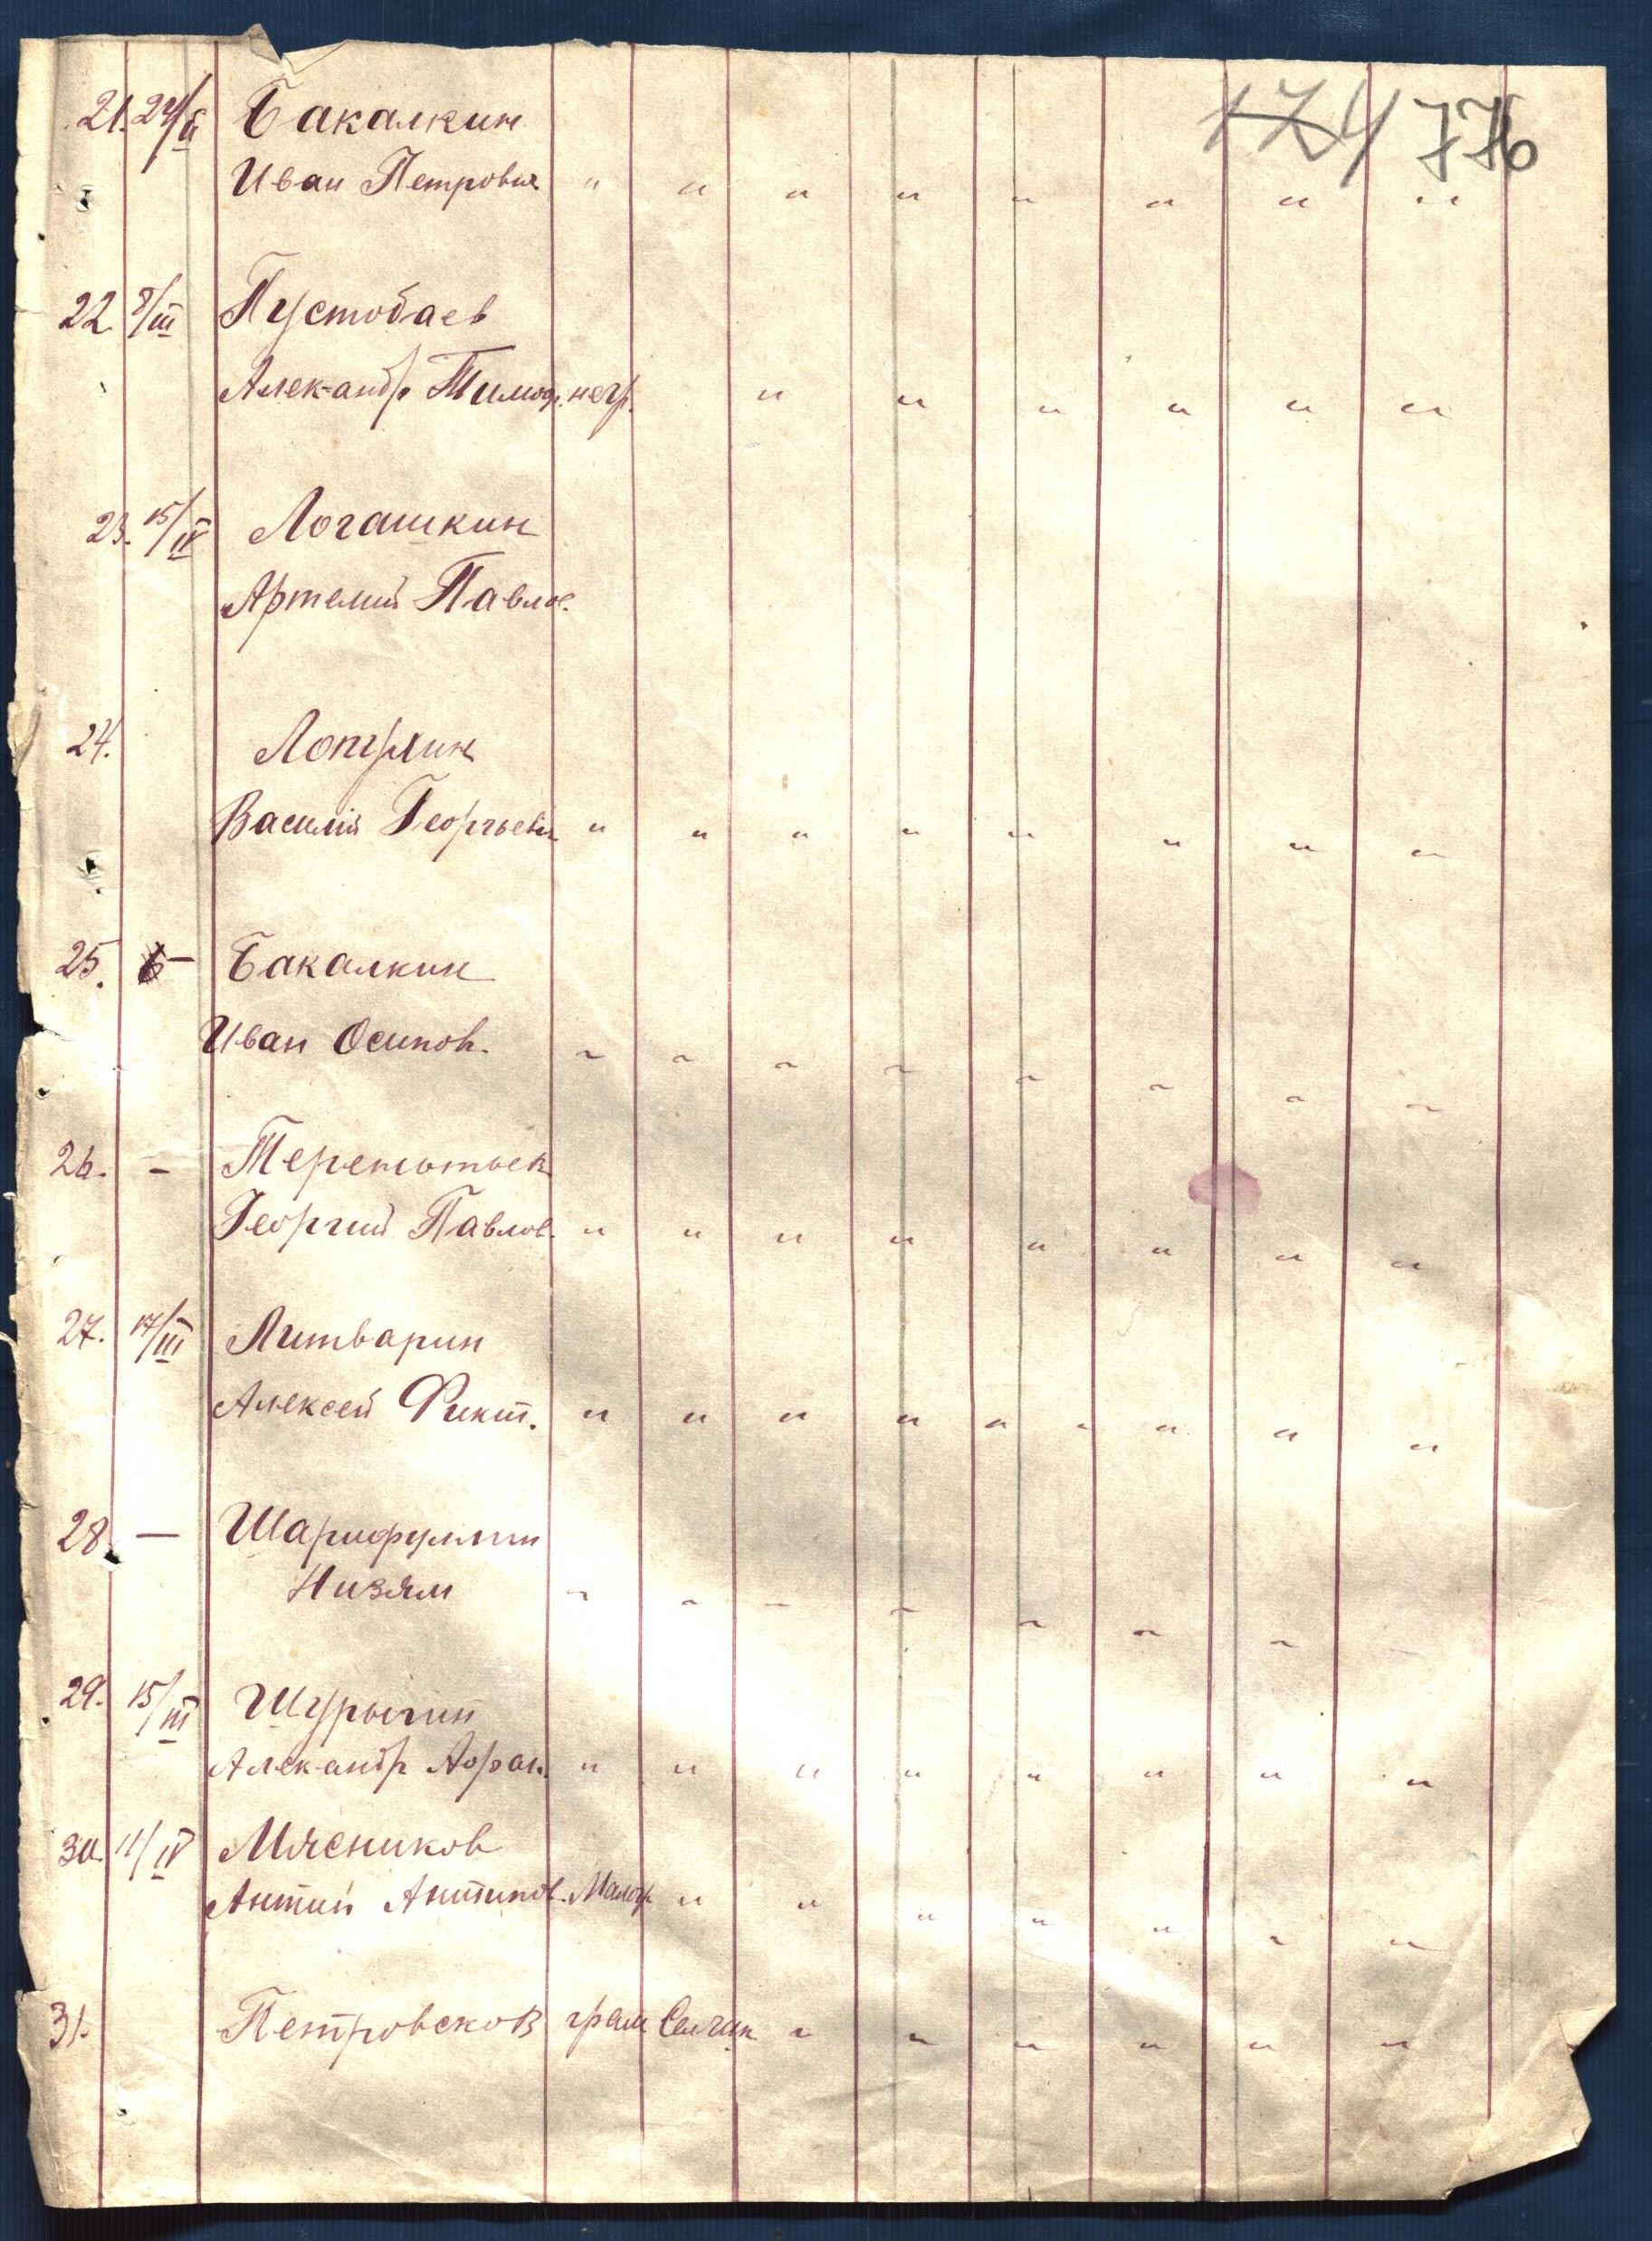 174 776
21. 24/II Бакалкин
Иван Петрович " " " " " " " "
22. 8/III Пустобаев
Алек-андр Тимоф. негр. " " " " " "
23. 15/IV Логашкин
Артемий Павлов.
24. Лопухин
Василий Георгьевич " " " " " " " "
25. — Бакалкин
Иван Осипов. " " " " " " " "
26. —
Георгий Павлов. " " " " " " " "
27. 17/III Литварин
Алексей Фикт. " " " " " " " " "
28 — Шарифуллин
Низям " " " " " " "
29. 15/III Шурыгин
Алек-андр " " " " " " " "
30. 11/IV Мясников
Антип Антипов. Малогр " " " " " " "
31. Петровсков грам " " " " " "